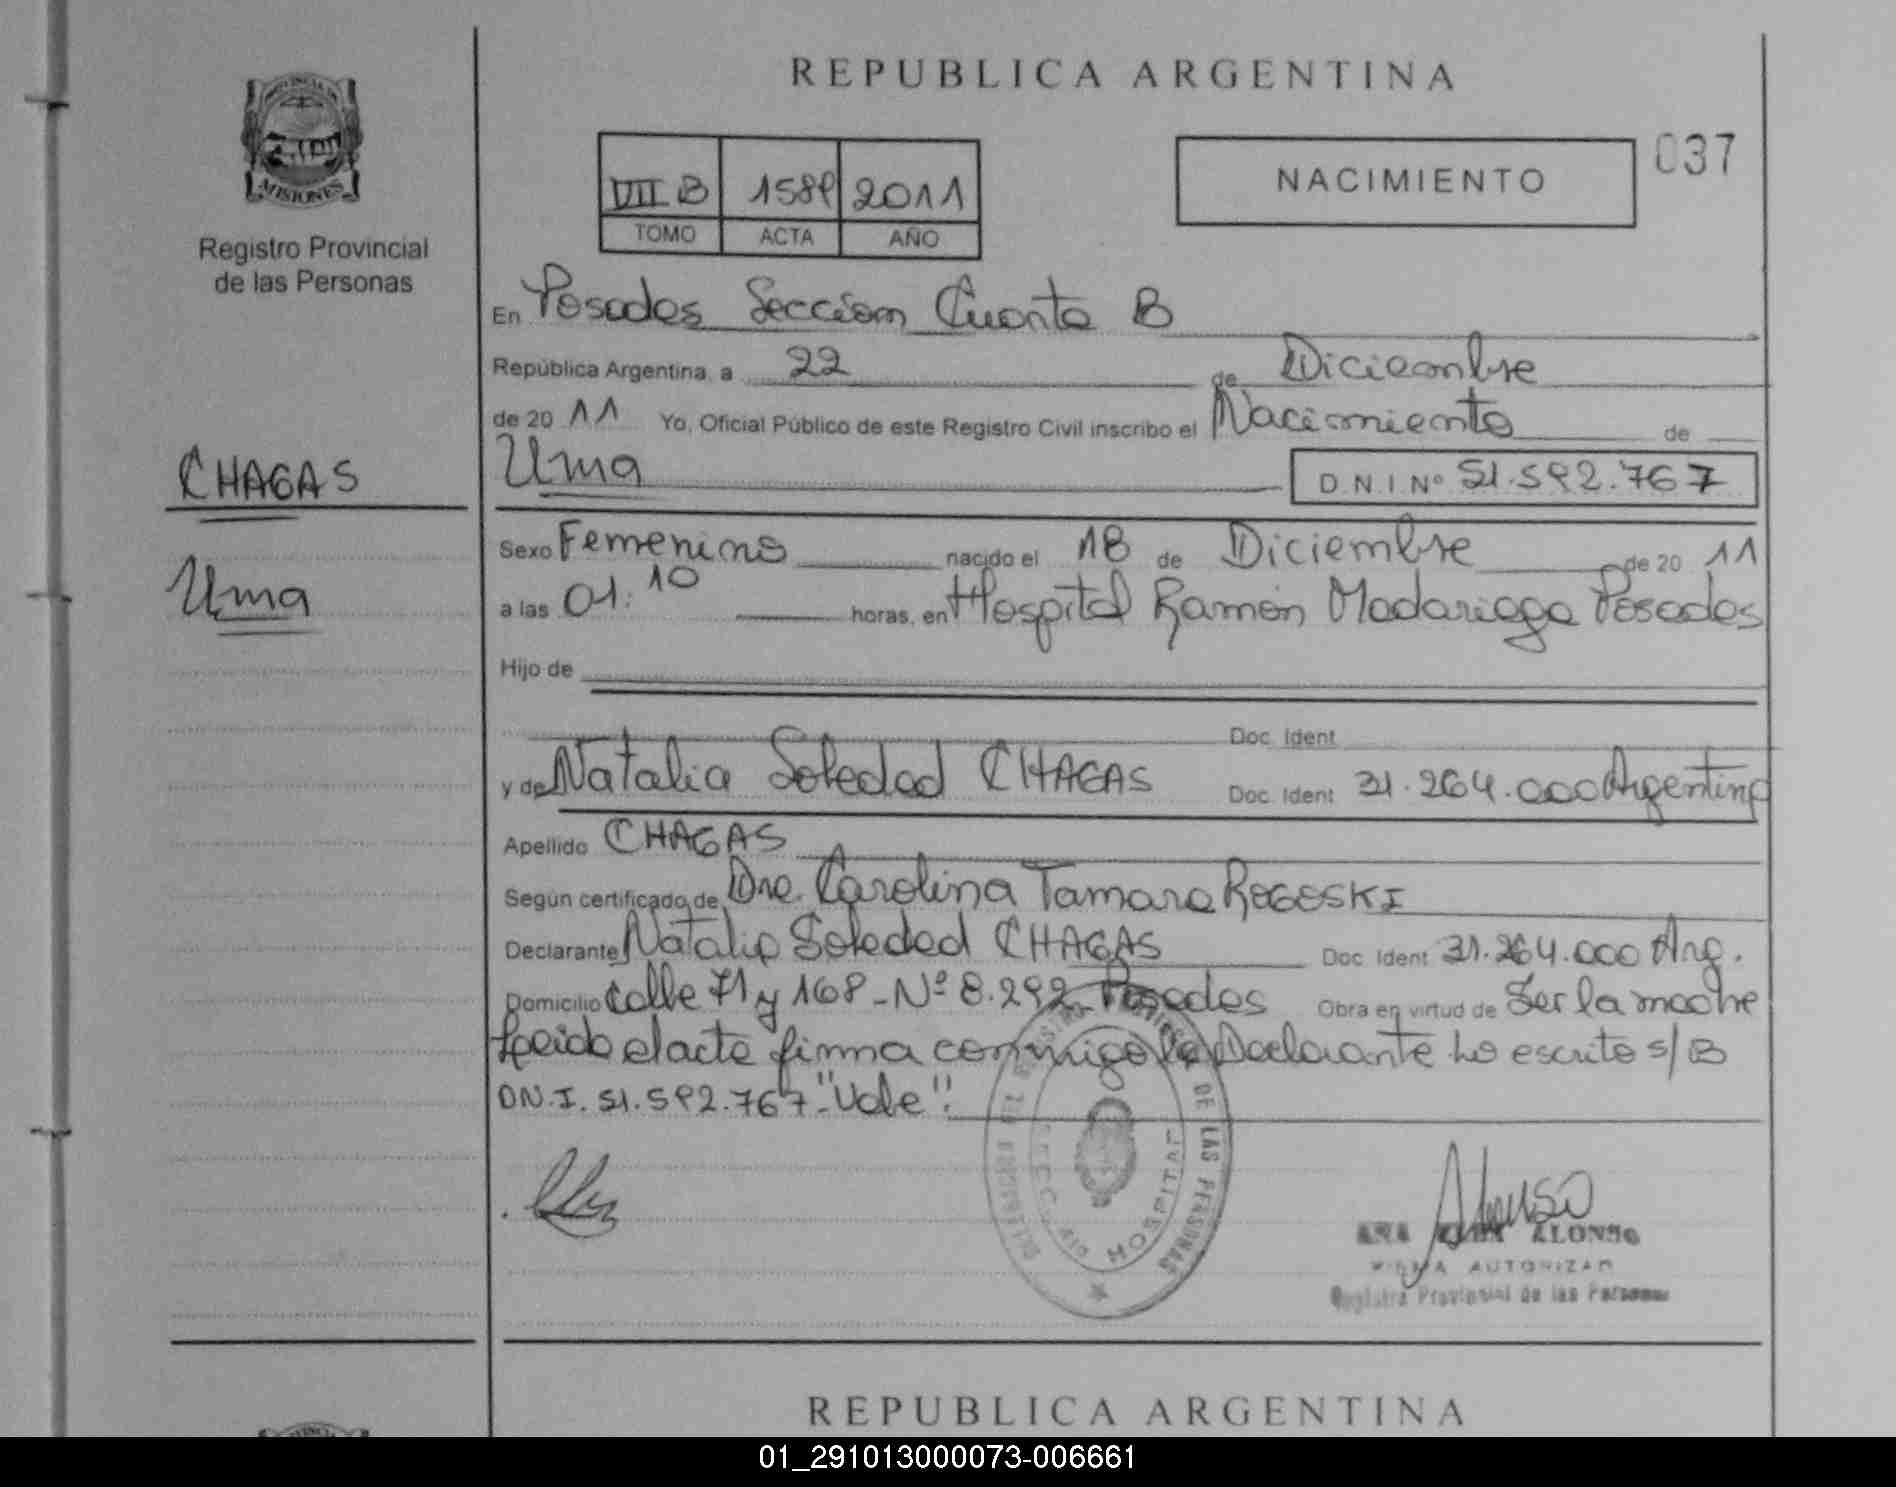 REPUBLICA ARGENTINA
PROVINCIA DE
MISIONES
Registro Provincial
de las Personas
VII B 1589 2011
TOMO ACTA AÑO
NACIMIENTO
037
En Posadas Sección Cuarta B
República Argentina, a 22 de Diciembre
de 20 11 Yo, Oficial Público de este Registro Civil inscribo el Nacimiento de
CHAGAS
Uma
D.N.I Nº 51.592.767
Uma
Sexo Femenino nacido el 18 de Diciembre de 20 11
a las 01:10 horas, en Hospital Ramón Madariaga Posadas
Hijo de
Doc. Ident
y de Natalia Soledad CHAGAS Doc. Ident 31.264.000 Argentina
Apellido CHAGAS
Según certificado de Dra. Carolina Tamara ROGOSKI
Declarante Natalia Soledad CHAGAS Doc. Ident 31.264.000 Arg.
Domicilio Calle 71 y 168 - Nº 8.292 Posadas Obra en virtud de Ser la madre
Leido el acta firma conmigo la Declarante lo escrito s/B
D.N.I. 51.592.767 "Vale".
DE LAS PERSONAS
HOSPITAL
Alonso
ANA ALONSO
AUTORIZAD
Registro Provincial de las Personas
REPUBLICA ARGENTINA
01_291013000073-006661